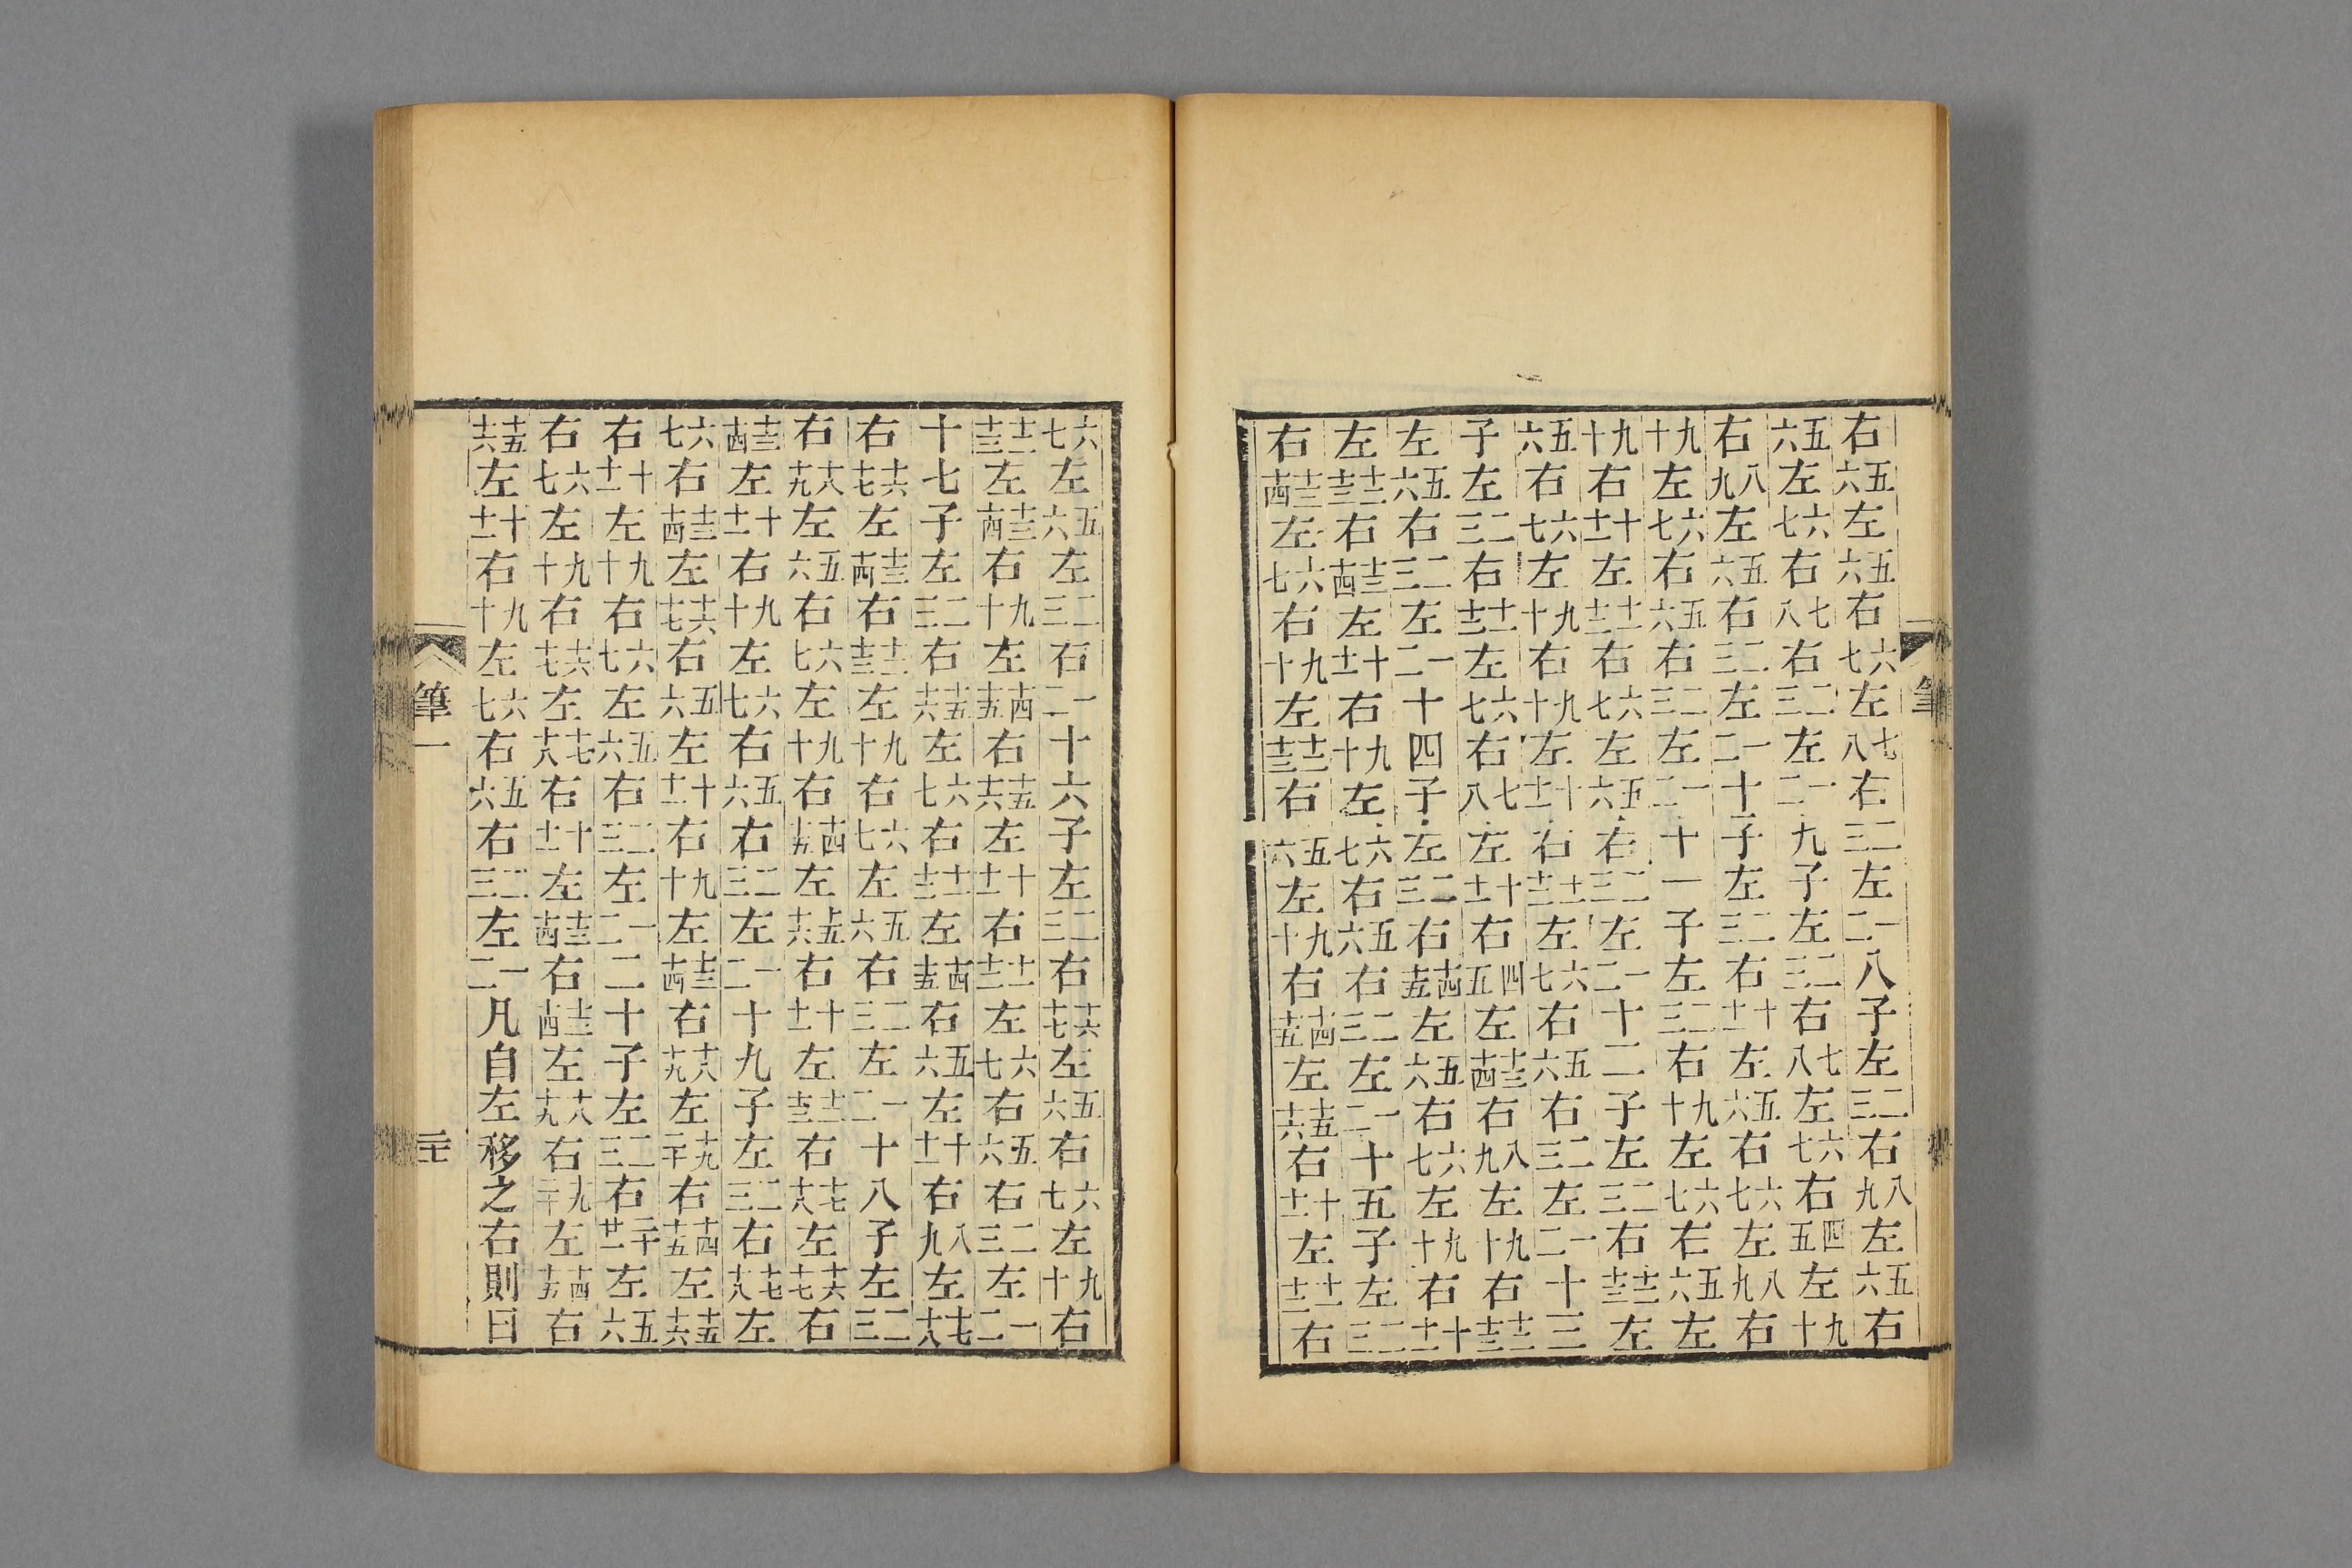 右五六左五六右六七左七八右二三左一二八子左二三右八九左五六右
五六左六七右七八右二三左一二九子左二三右七八左六七右四五左九十
右八九左五六右二三左一二十子左二三右十十一左五六右六七左八九右
九十左六七右五六右二三左一二十一子左二三右九十左六七右五六左
九十右十十一左十一十二右六七左五六右二三左一二十二子左二三右十二十三左
五六右六七左九十右九十左十十一右十一十二左六七右五六右二三左一二十三
子左二三右十一十二左六七右七八左十十一右四五左十三十四右八九左九十右十二十三
左五六右二三左一二十四子左二三右十四十五左五六右六七左九十右十十一
左十二十三右十三十四左十十一右九十左六七右五六右二三左一二十五子左二三
右十三十四左六七右九十左十二十三右五六左九十右十四十五左十五十六右十十一左十一十二右
六七左五六左二三右一二十六子左二三右十六十七左五六右六七左九十右
十二十三左十三十四右九十左十四十五右十五十六左十十一右十一十二左六七右五六右二三左一二
十七子左二三右十五十六左六七右十一十二左十四十五右五六左十十一右八九左十七十八
右十六十七左十三十四右十二十三左九十右六七左五六右二三左一二十八子左二三
右十八十九左五六右六七左九十右十四十五左十五十六右十十一左十二十三右十七十八左十六十七右
十三十四左十十一右九十左六七右五六右二三左一二十九子左二三右十七十八左
六七右十三十四左十六十七右五六左十十一右九十左十三十四右十八十九左十九二十右十四十五左十五十六
右十十一左九十右六七左五六右二三左一二二十子左二三右二十廿一左五六
右六七左九十右十六十七左十七十八右十十一左十三十四右十三十四左十八十九右九二十左十四十五右
十五十六左十十一右九十左六七右五六右二三左一二凡自左移之右則曰
筆一